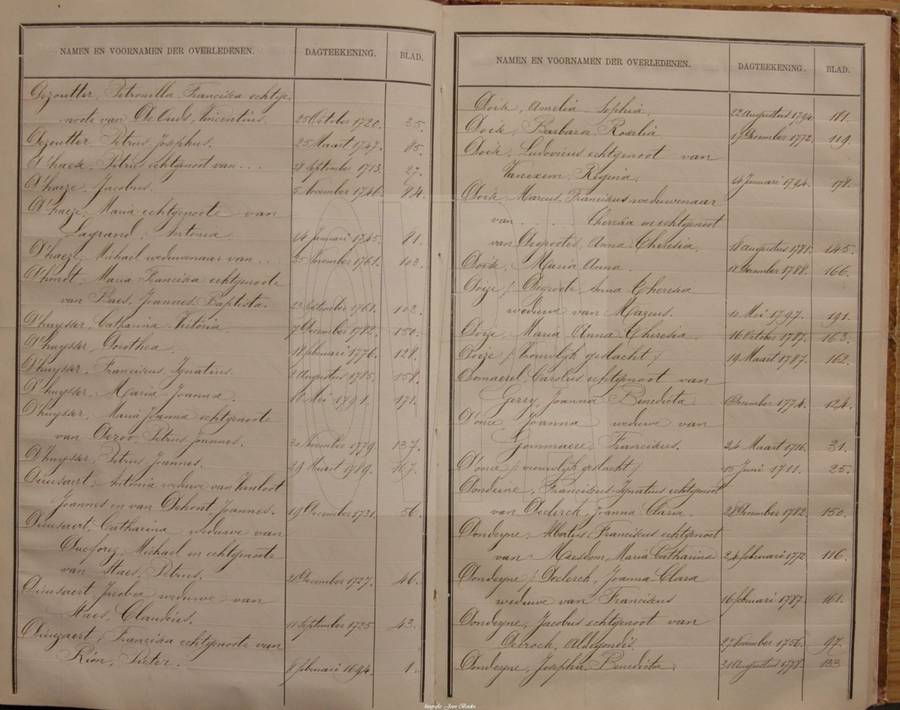 NAMEN EN VOORNAMEN DER OVERLEDENEN. DAGTEEKENING. BLAD.
Dezoutter, Petronilla Francisca echtge-
noote van De Oude, Vincentius. 25 October 1720. 35.
Dezoutter, Petrus Josephus. 25 Maart 1747. 85.
D'haeze, Petrus echtgenoot van . . . 28 September 1713. 27.
D'haeze, Jacobus. 5 November 1746. 84.
D'haeze, Maria echtgenoote van
Lagrand, Antonia. 14 Januari 1745. 81.
D'haeze, Michael weduwenaar van . . . 25 November 1761. 103.
D'hondt, Maria Francisca echtgenoote
van Baes, Joannes Baptista. 1761. 102.
D'huysser, Catharina Victoria. 7 December 1782. 150.
D'huysser, Dorothea. 18 februari 1776. 128.
D'huysser, Franciscus Ignatius. 2 Augustus 1785. 158.
D'huysser, Maria Joanna. Mei 1791. 171.
D'huysser, Maria Joanna echtgenoote
van Deroo, Petrus Joannes. November 1779. 137.
D'huysser, Petrus Joannes. 29 Maart 1789. 167.
Dieusaert, Antonia weduwe van
Joannes en van Dehont, Joannes. 19 December 1731. 56.
Dieusaert, Catharina weduwe van
Michael en echtgenoote
van Staes, Petrus. December 1727. 46.
Dieusaert, Jacoba weduwe van
Staes, Claudius. 11 September 1725. 43.
Francisca echtgenoote van
Pieter. 8 februari 1694. 1.
NAMEN EN VOORNAMEN DER OVERLEDENEN. DAGTEEKENING. BLAD.
Doize, Amelia Sophia. 22 Augustus 1794. 181.
Doize, Barbara Rosalia. 17 December 1772. 119.
Doize, Ludovicus echtgenoot van
Vanexem, Regina. Januari 1794. 178.
Doize, Marcus Franciscus weduwenaar
van . . . Theresia en echtgenoot
van Degrootes, Anna Theresia. 18 Augustus 1781. 145.
Doize, Maria Anna. December 1788. 166.
Doize / Degroote, Anna Theresia
weduwe van Marcus. Mei 1797. 191.
Doize, Maria Anna Theresia. 16 October 1787. 163.
Doize / vrouwlijk geslacht / 19 Maart 1787. 162.
Carolus echtgenoot van
Joanna Benedicta. December 1774. 124.
Joanna weduwe van
Gommaere, Franciscus. 24 Maart 1716. 31.
/ vrouwlijk geslacht / 15 Juni 1711. 25.
Franciscus Ignatius echtgenoot
van Declerck, Joanna Clara. 28 December 1782. 150.
Dondeyne, Albertus Franciscus echtgenoot
van Maria Catharina. 24 februari 1772. 116.
Dondeyne / Declerck, Joanna Clara
weduwe van Franciscus. 16 februari 1787. 161.
Dondeyne, Jacobus echtgenoot van
Aldegondis. 27 November 1756. 97.
Dondeyne, Josepha Benedicta. 21 Augustus 1778. 133